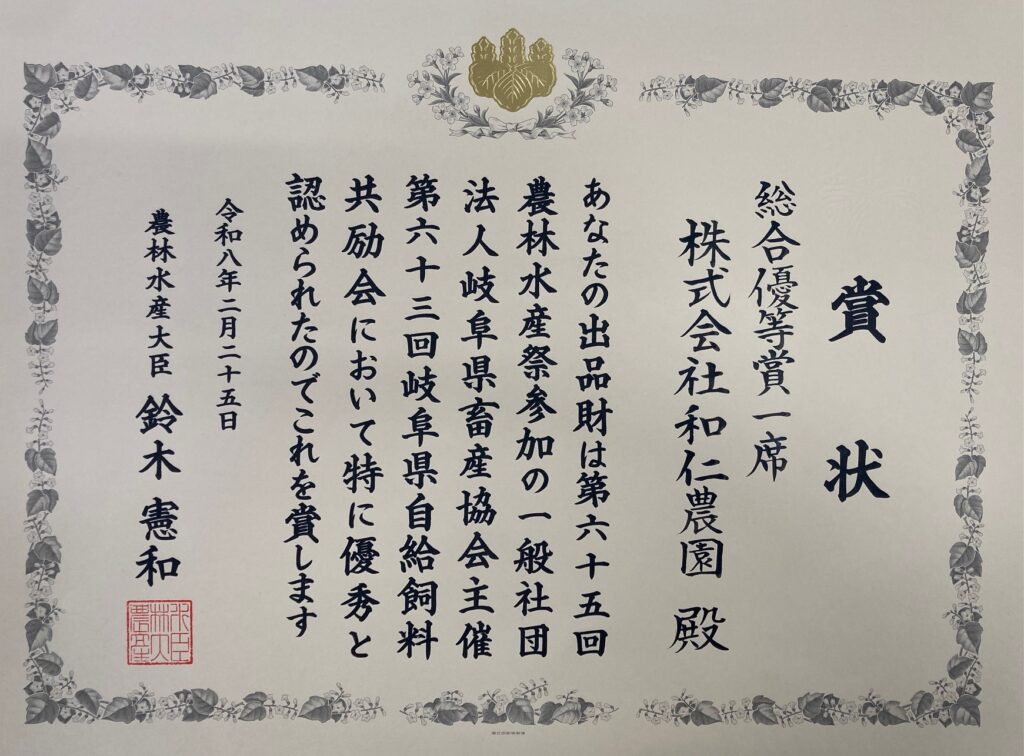 賞状
総合優等賞一席
株式会社和仁農園 殿
あなたの出品財は第六十五回
農林水産祭参加の一般社団
法人岐阜県畜産協会主催
第六十三回岐阜県自給飼料
共励会において特に優秀と
認められたのでこれを賞します
令和八年二月二十五日
農林水産大臣 鈴木憲和